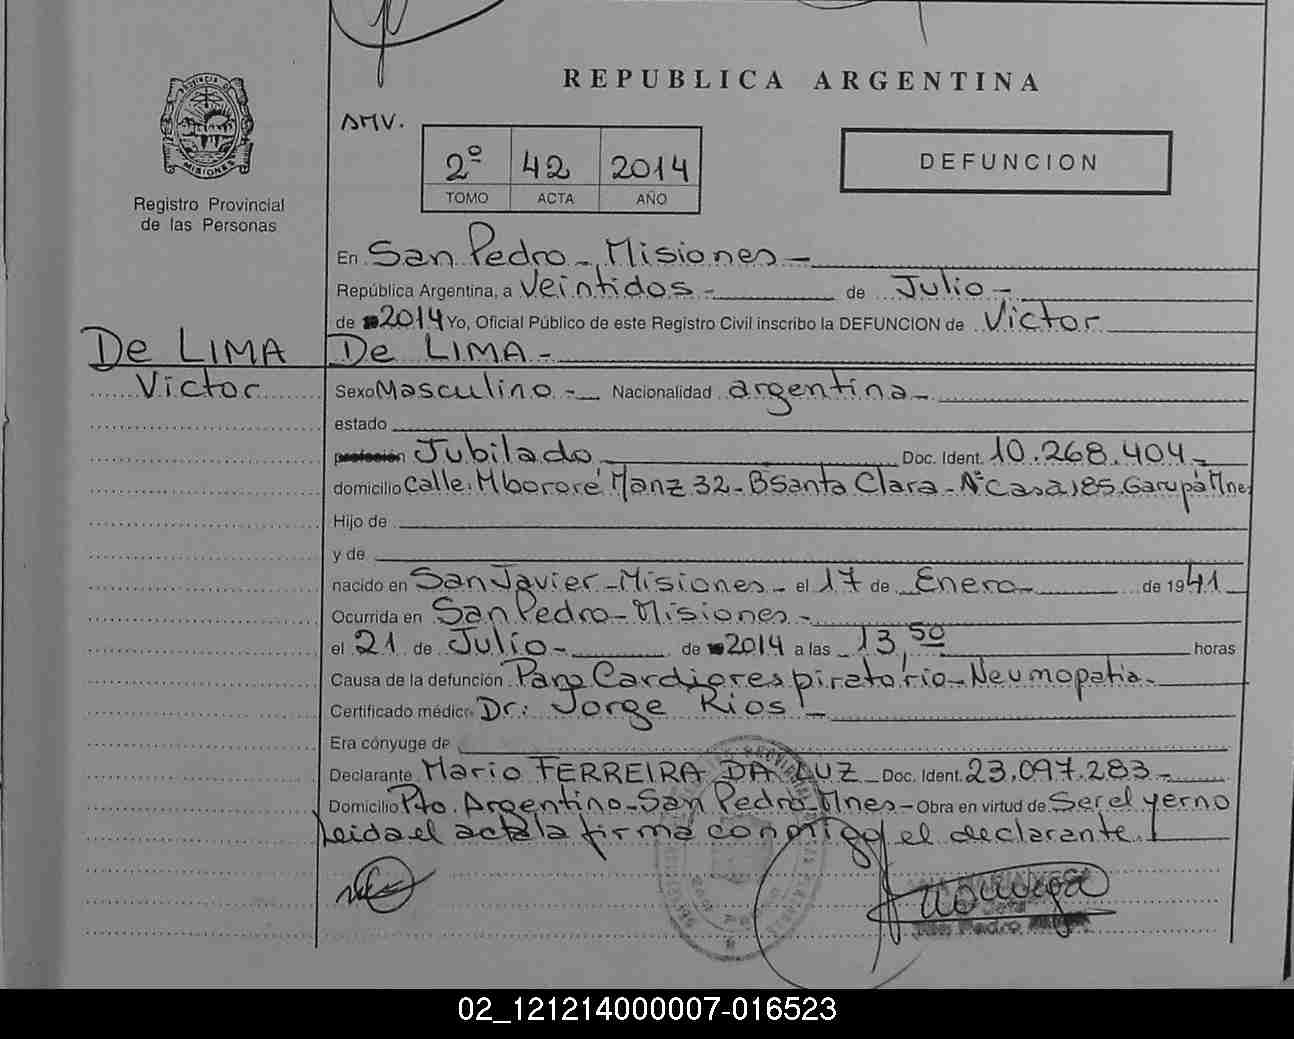 REPUBLICA ARGENTINA
PROVINCIA DE MISIONES
Registro Provincial
de las Personas
AMV.
2º 42 2014
TOMO ACTA AÑO
DEFUNCION
En San Pedro - Misiones -
República Argentina, a Veintidos - de Julio -
de 2014 Yo, Oficial Público de este Registro Civil inscribo la DEFUNCION de Victor
De LIMA De LIMA -
Victor Sexo Masculino - Nacionalidad argentina -
estado
profesión Jubilado Doc. Ident. 10.268.404 -
domicilio Calle: Mbororé Manz 32 - Bº Santa Clara - Nº Casa 185. Garupá Mnes
Hijo de
y de
nacido en San Javier - Misiones - el 17 de Enero - de 1941
Ocurrida en San Pedro - Misiones -
el 21 de Julio - de 2014 a las 13,50 horas
Causa de la defunción Paro Cardiorespiratorio - Neumopatia -
Certificado médico Dr: Jorge Rios -
Era cónyuge de
Declarante Mario FERREIRA DA LUZ - Doc. Ident. 23.097.283 -
Domicilio Pto. Argentino - San Pedro - Mnes - Obra en virtud de Ser el yerno
Leida el acta la firma conmigo el declarante.
San Pedro
02_121214000007-016523